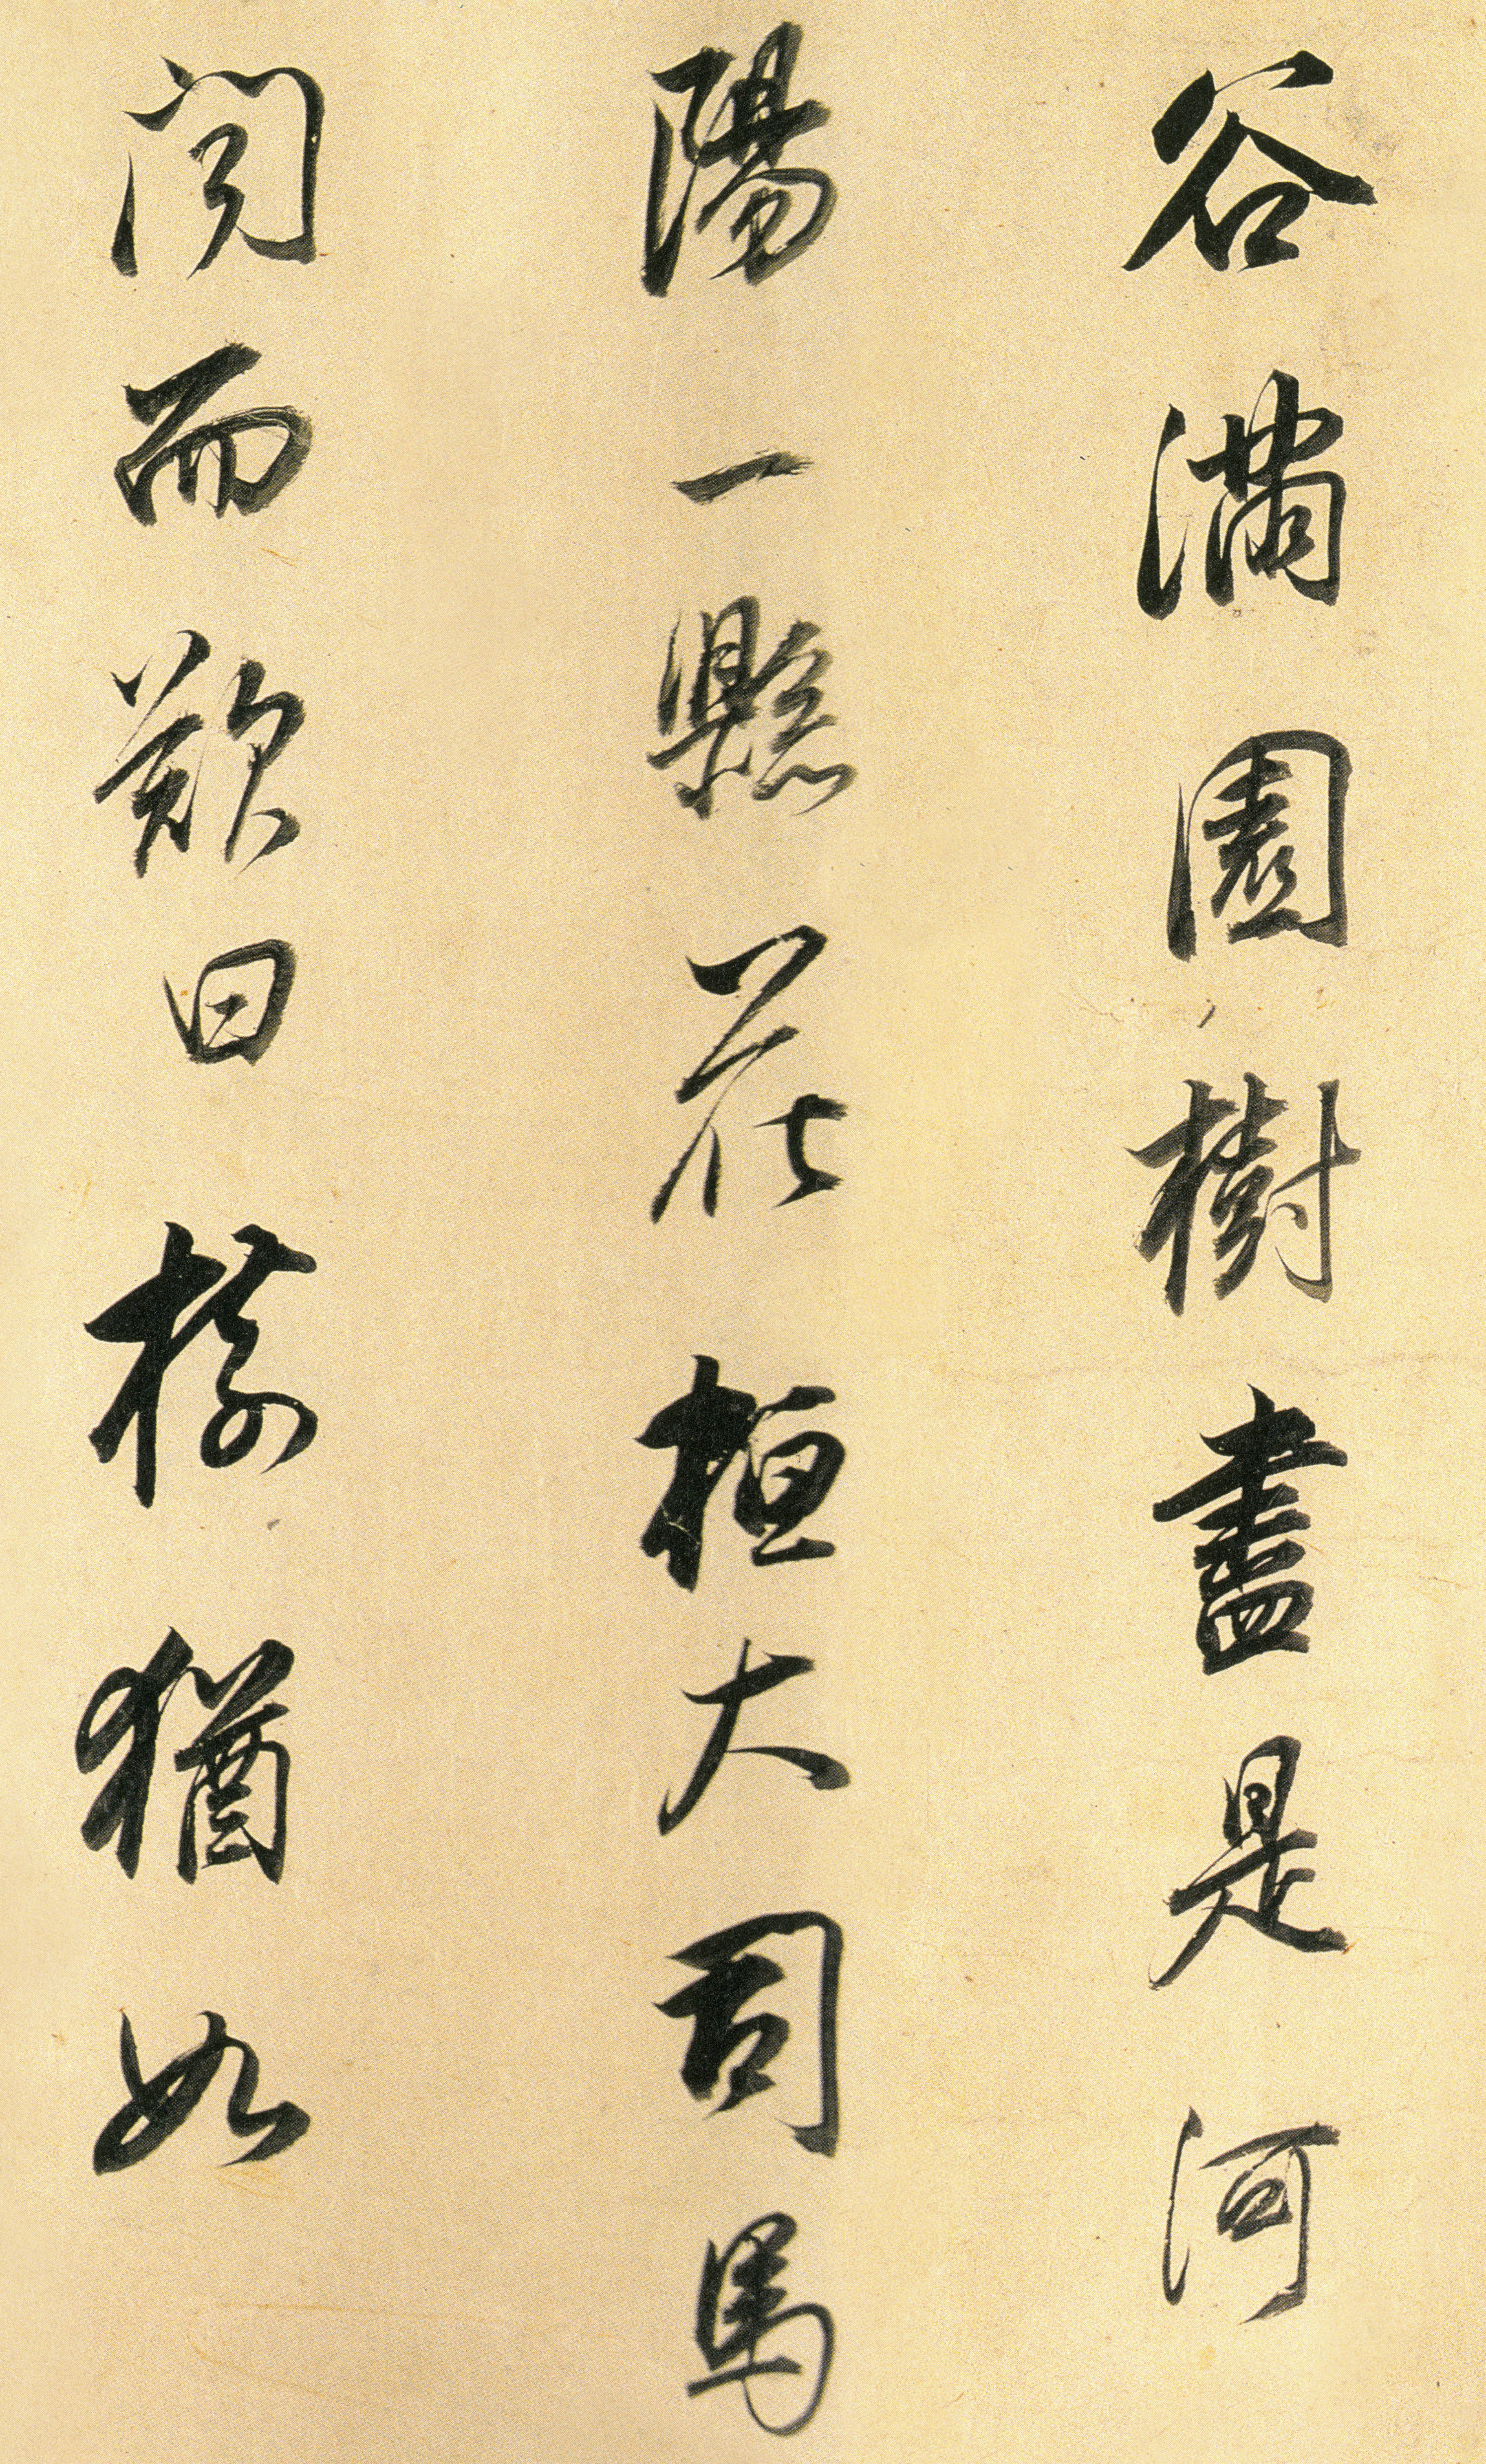 谷滿園樹盡是河
陽一縣花桓大司馬
聞而歎曰樹猶如